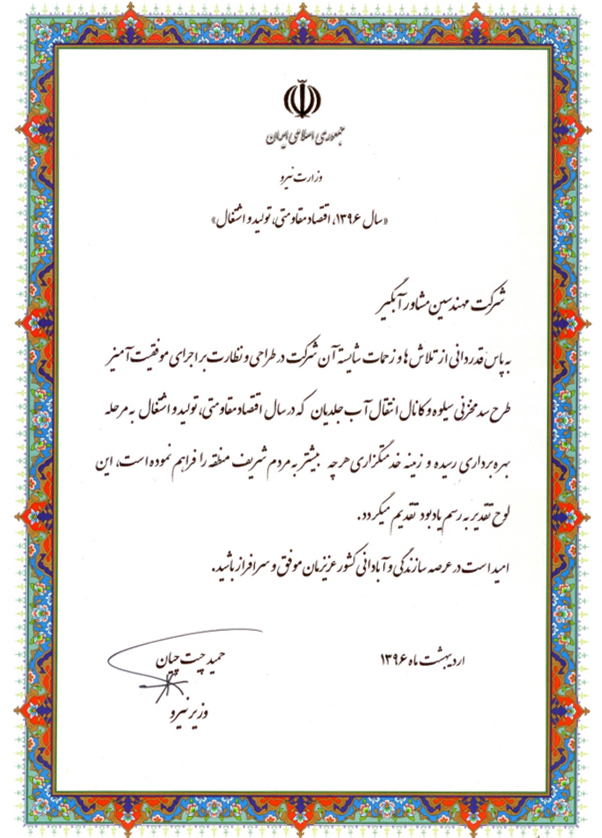 جمهوری اسلامی ایران
وزارت نیرو
«سال ۱۳۹۶، اقتصاد مقاومتی، تولید و اشتغال»
شرکت مهندسین مشاور آبگیر
به پاس قدردانی از تلاش ها و زحمات شایسته آن شرکت در طراحی و نظارت بر اجرای موفقیت آمیز
طرح سد مخزنی سیلوه و کانال انتقال آب جلدیان که در سال اقتصاد مقاومتی، تولید و اشتغال به مرحله
بهره برداری رسیده و زمینه خدمتگزاری هر چه بیشتر به مردم شریف منطقه را فراهم نموده است، این
لوح تقدیر به رسم یادبود تقدیم میگردد.
امید است در عرصه سازندگی و آبادانی کشور عزیزمان موفق و سرافراز باشید.
اردیبهشت ماه ۱۳۹۶
حمید چیت چیان
وزیر نیرو